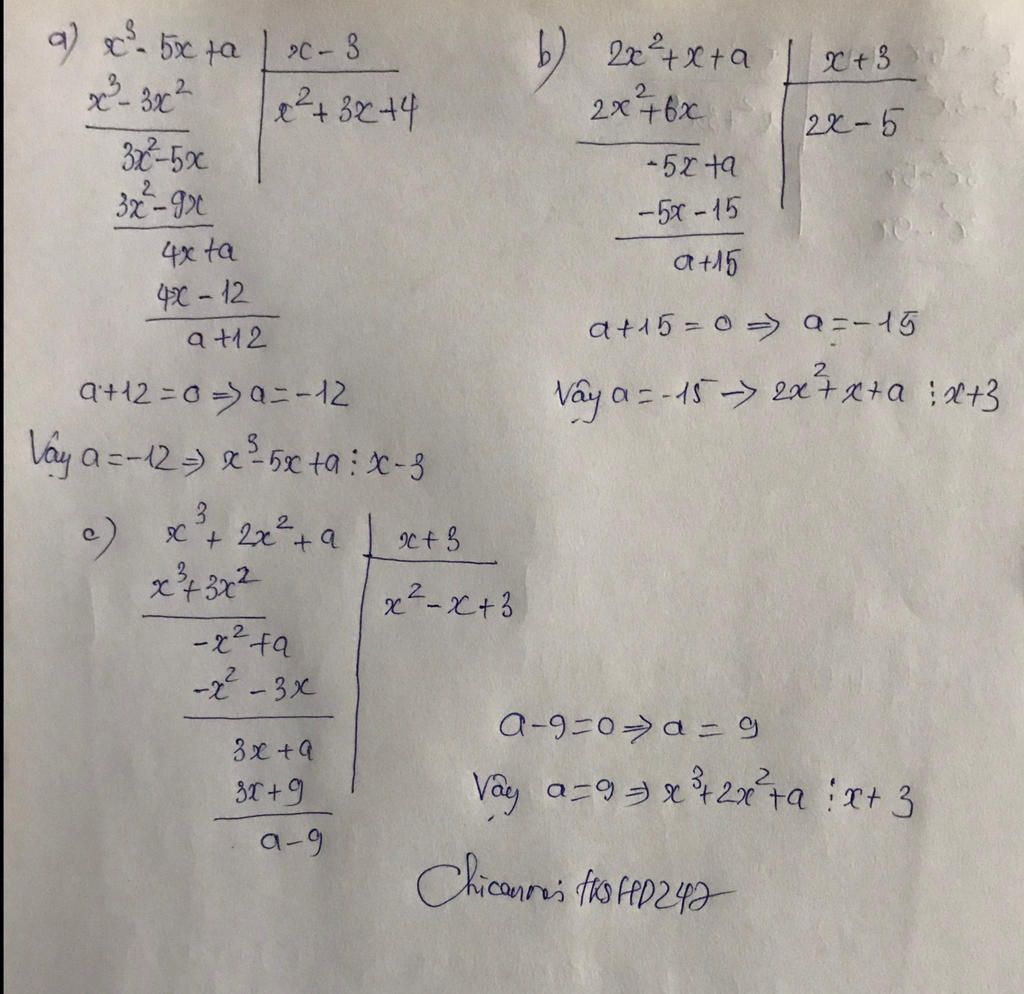 a) x³ - 5x + a | x - 3
x³ - 3x² | x² + 3x + 4
3x² - 5x
3x² - 9x
4x + a
4x - 12
a + 12
a + 12 = 0 ⇒ a = -12
Vậy a = -12 ⇒ x³ - 5x + a ⋮ x - 3
b) 2x² + x + a | x + 3
2x² + 6x | 2x - 5
-5x + a
-5x - 15
a + 15
a + 15 = 0 ⇒ a = -15
Vậy a = -15 → 2x² + x + a ⋮ x + 3
c) x³ + 2x² + a | x + 3
x³ + 3x² | x² - x + 3
-x² + a
-x² - 3x
3x + a
3x + 9
a - 9
a - 9 = 0 ⇒ a = 9
Vậy a = 9 ⇒ x³ + 2x² + a ⋮ x + 3